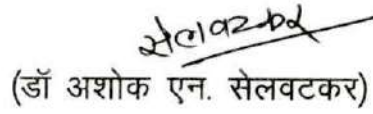 सेलवटकर
(डॉ अशोक एन. सेलवटकर)